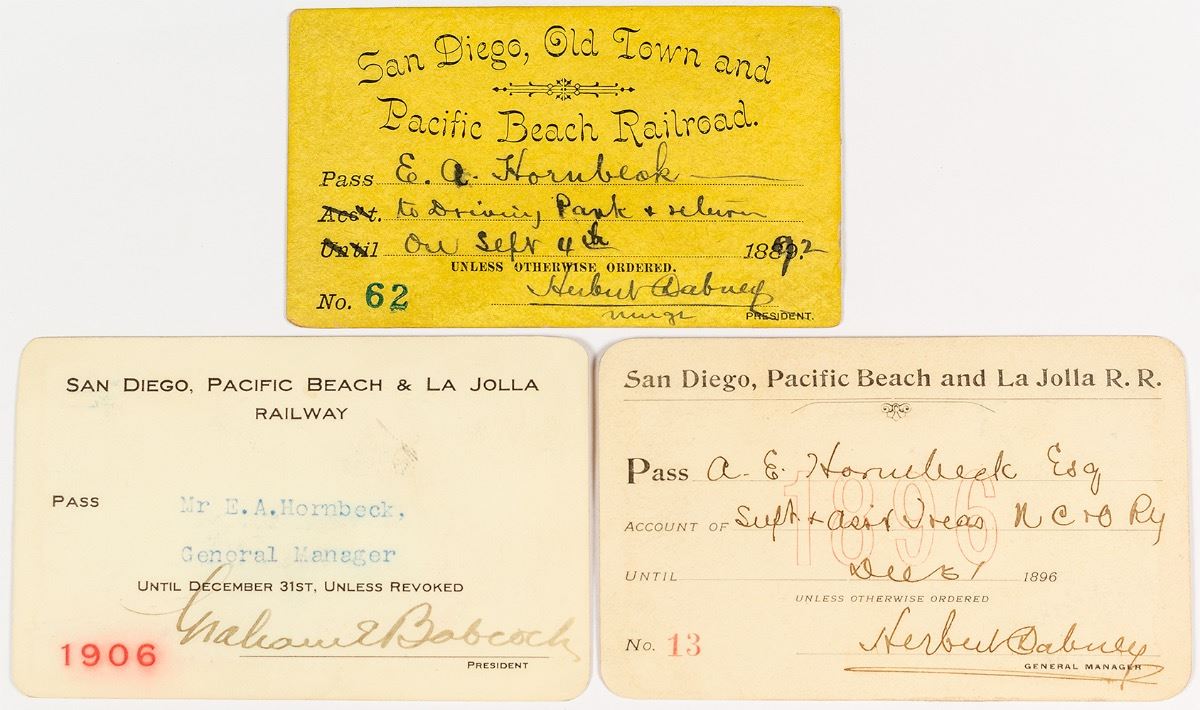 San Diego, Old Town and
Pacific Beach Railroad.
Pass E. A. Hornbeck
Acc't. to Driving Park & return
Until On Sept 4th 1889. 92
UNLESS OTHERWISE ORDERED.
Herbert Dabney
No. 62
PRESIDENT.
SAN DIEGO, PACIFIC BEACH & LA JOLLA
RAILWAY
PASS Mr E.A.Hornbeck,
General Manager
UNTIL DECEMBER 31ST, UNLESS REVOKED
Graham E Babcock
1906
PRESIDENT
San Diego, Pacific Beach and La Jolla R. R.
Pass A. E. Hornbeck Esq
1896
ACCOUNT OF Supt & Asst Treas N C & O Ry
UNTIL Dec 31 1896
UNLESS OTHERWISE ORDERED
No. 13 Herbert Dabney
GENERAL MANAGER